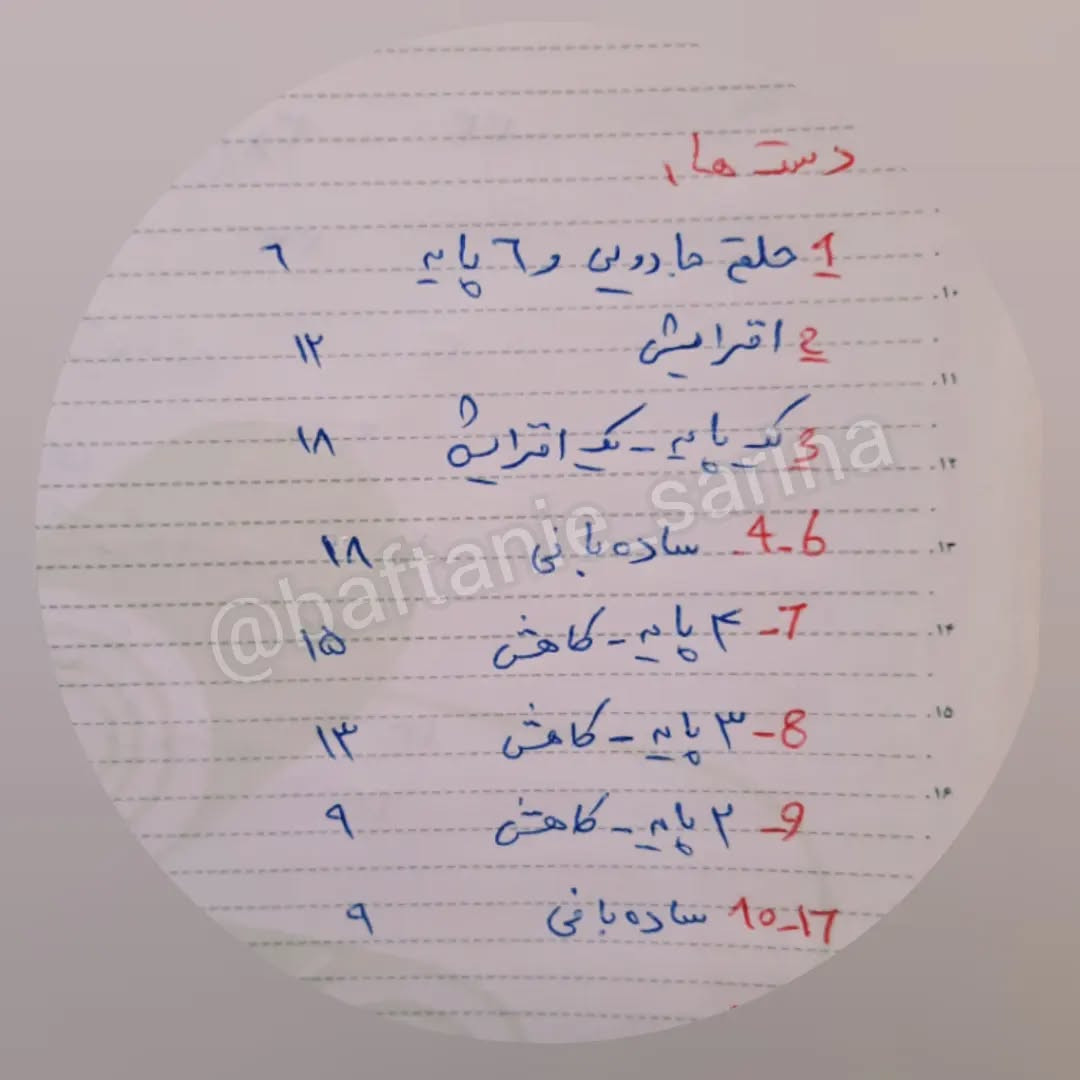 دست ها،
1 حلقه جادویی و ٦ پایه ٦
2 افزایش ۱۲
3 یک پایه - یک افزایش ۱۸
4-6- ساده بافی ۱۸
7- ۴ پایه - کاهش ۱۵
8- ۳ پایه - کاهش ۱۳
9- ۲ پایه - کاهش ۹
10-17 ساده بافی ۹
۱۰
۱۱
۱۲
۱۳
۱۴
۱۵
۱۶
@baftanie_sarina